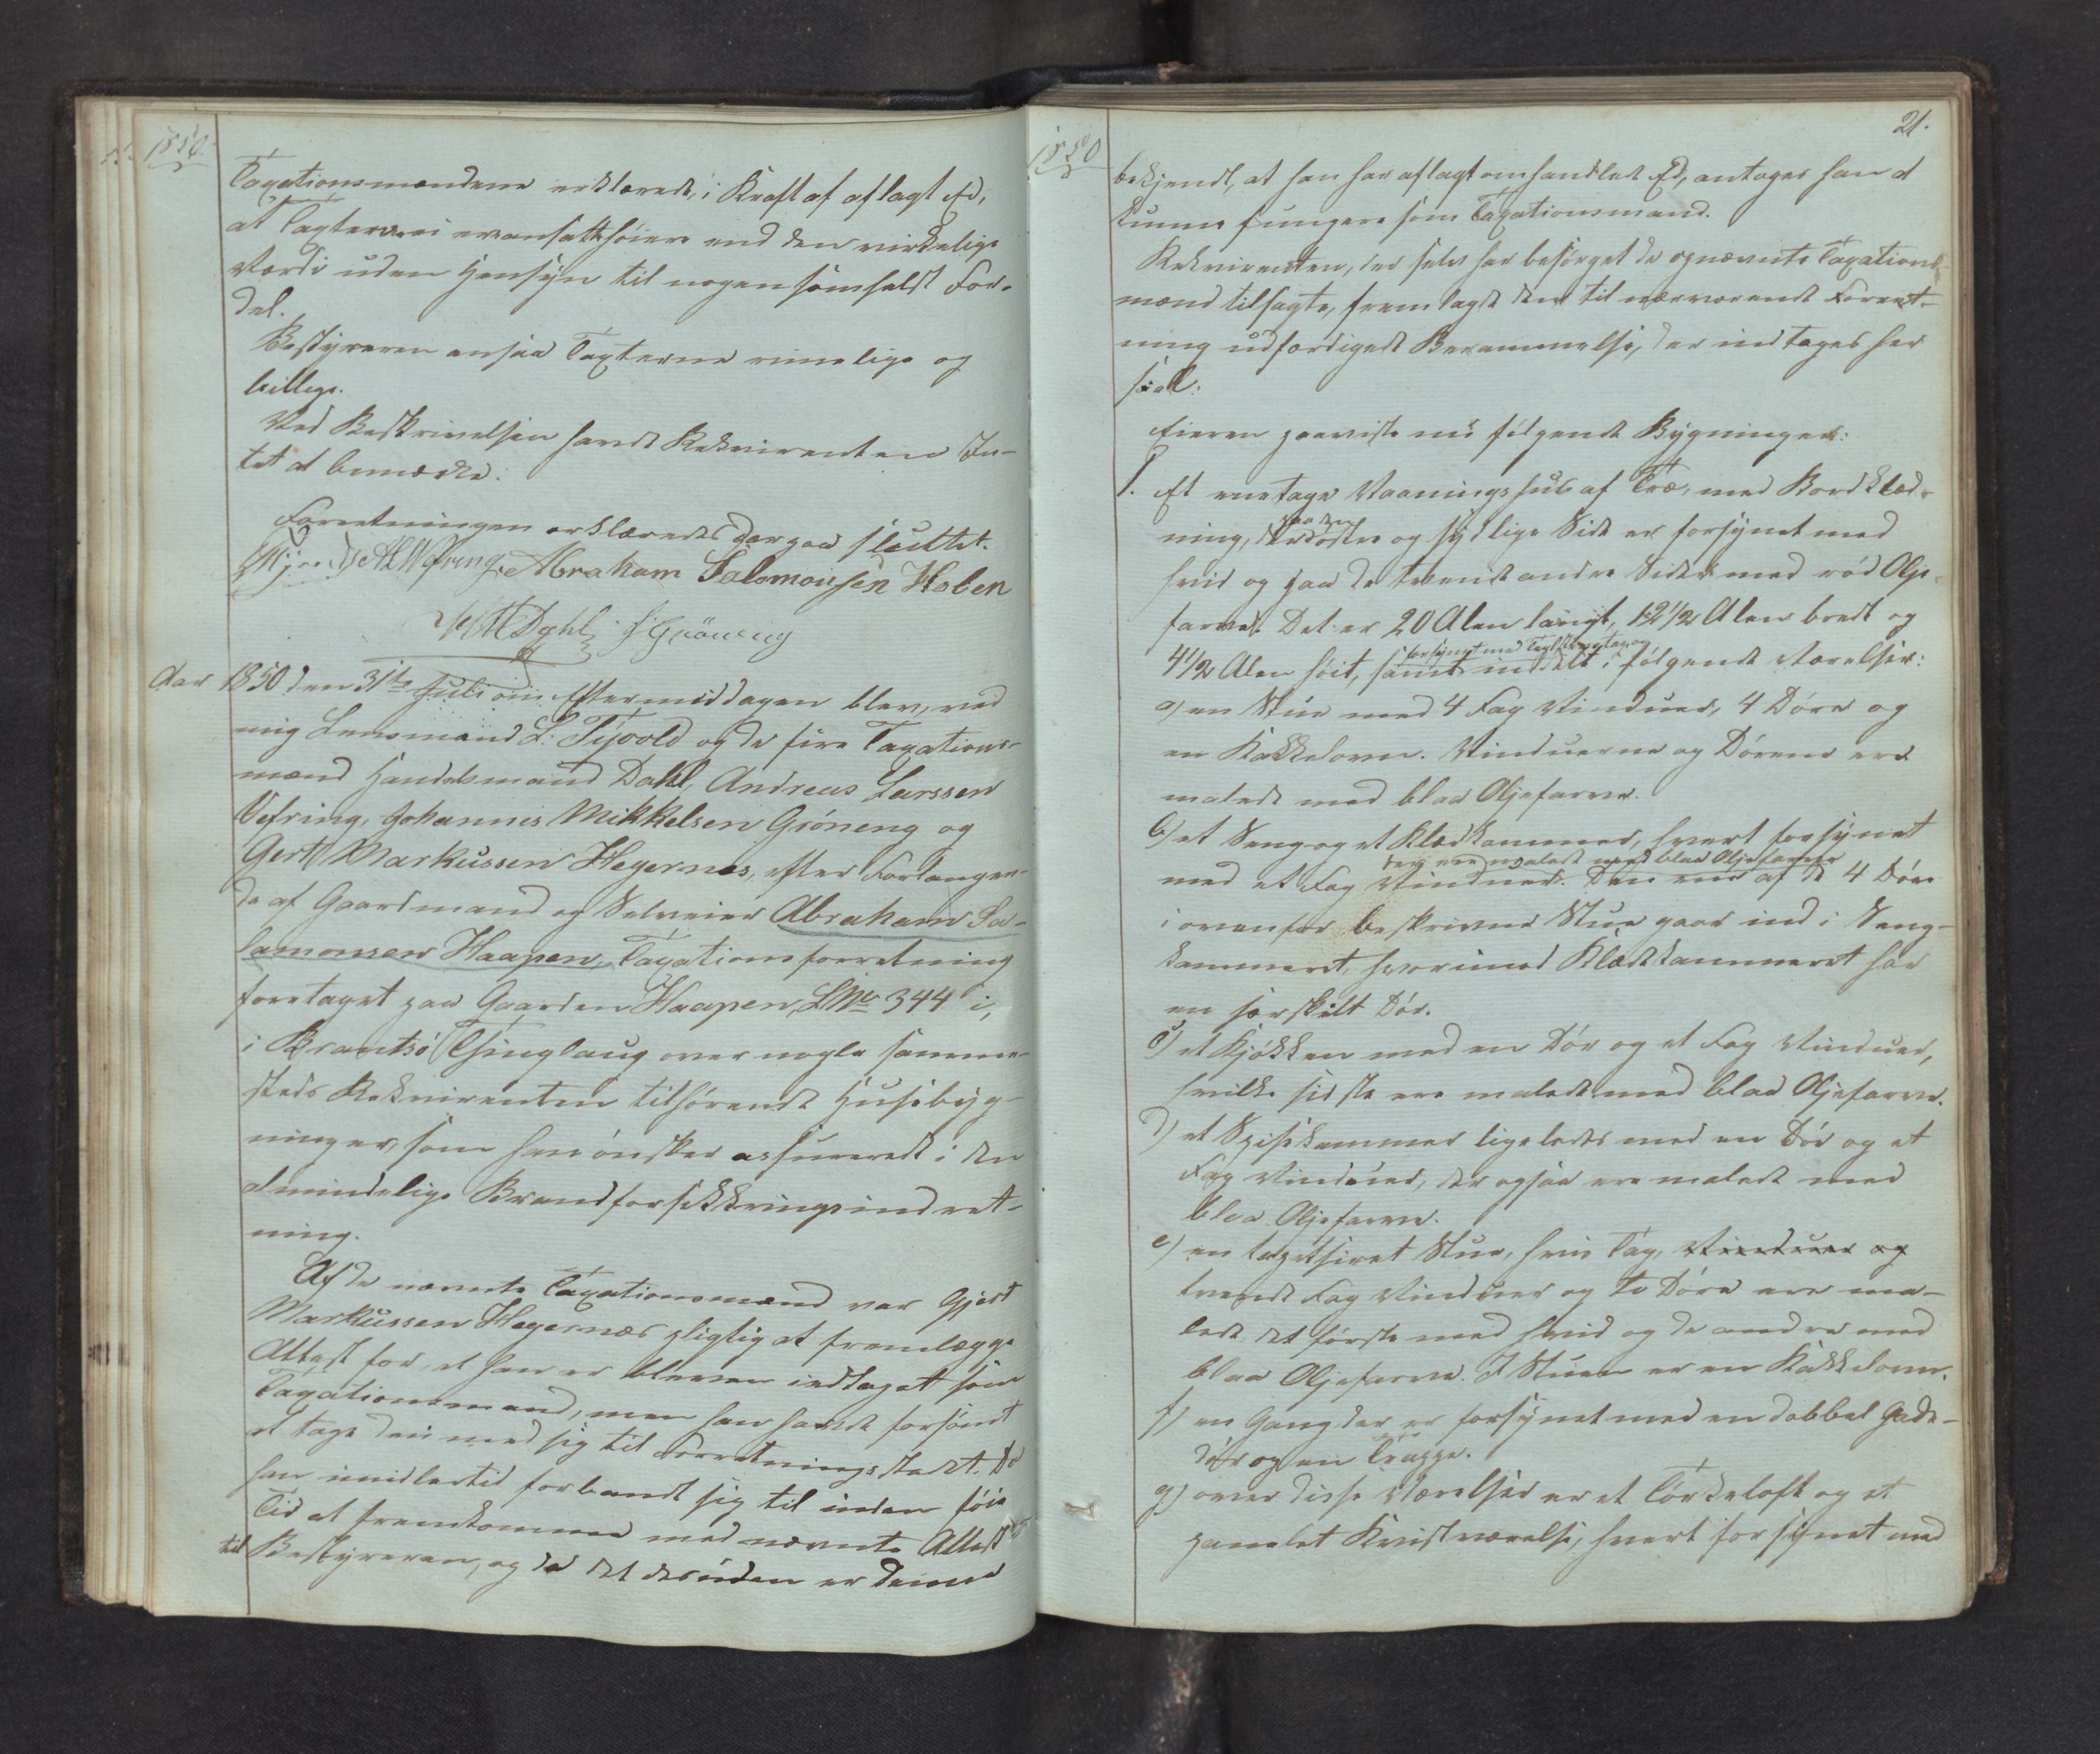 1850.
Taxationsmændene erklærede, i Kraft af aflagt Ed,
at Taxterne ei ere ansatte høiere end den virkelige
Værdi uden Hensyn til nogensomhelst For-
del.
Bestyreren ansaa Taxterne rimelige og
billige.
Ved Beskrivelsen havde Rekvirenten In-
tet at bemærke.
Forretningen erklæredes derpaa sluttet.
Abraham Salomonsen Hoben
Dahl J Gröneng
Aar 1850 den 31te Juli om Eftermiddagen blev, ved
mig Lensmand L. Tysvold og de fire Taxations-
mænd Handelsmand Dahl, Andreas Larssen
Vefring, Johannes Mikkelsen Gröneng og
Gert Markussen Hegernes, efter Forlangen-
de af Gaardmand og Selveier Abraham Sa-
lamonsen Haapen, Taxationsforretning
foretaget paa Gaarden Haapen, LNo 344 i,
i Brantsö Thinglaug over nogle samme-
steds Rekvirenten tilhørende Huusebyg-
ninger, som han ønsker assurerede i den
almindelige Brandforsikkringsindret-
ning.
Af de nævnte Taxationsmænd var Gjert
Markussen Hegernæs pligtig at fremlægge
Attest for, at han er bleven indtaget som
Taxationsmand, men han havde forsømt
at tage den med sig til Forretningsstedet. Da
han imidlertid forbandt sig til inden føie
Tid at fremkomme med nævnte Attest
til Bestyreren, og da det desuden er denne
21.
1850
bekjendt, at han har aflagt omhandlet Ed, antages han at
kunne fungere som Taxationsmand.
Rekvirenten, der selv har besørget de opnævnte Taxations-
mænd tilsagte, fremlagde den til nærværende Forret-
ning udfærdigede Berammelse, der indtages her
saal.
Eieren paaviste nu følgende Bygninger:
1. Et eenetages Vaaningshus af Træ, med Bordklæd-
paa den
ning, der østre og sydlige Side er forsynet med
hvid og paa de tvende andre Sider med rød Olje-
farve. Det er 20 Alen langt, 12 1/2 Alen bredt og
forsynet med Taglsteenstag og
4 1/2 Alen høit, samt inddelt i følgende Værelser:
a) en Stue med 4 Fag Vinduer, 4 Døre og
en Kakkelovn. Vinduerne og Dørene ere
malede med blaa Oljefarve.
b) et Seng og et Klædkammer, hvert forsynet
der ere malede med blaa Oljefarve
med et Fag Vinduer. Den ene af de 4 Døre
i ovenfor beskrivne Stue gaar ind i Seng-
kammeret, hvorimod Klædekammeret har
en særskilt Dør.
c) et Kjøkken med en Dør og et Fag Vinduer,
hvilke sidste ere malede med blaa Oljefarve.
d) et Spisekammer ligeledes med en Dør og et
Fag Vinduer, der ogsaa ere malede med
blaa Oljefarve.
e) en tapetseret Stue, hvis Tag, Vinduer og
tvende Fag Vinduer og to Døre ere ma-
lede, det første med hvid og de andre med
blaa Oljefarve. I Stuen er en Kakkelovn.
f) en Gang der er forsynet med en dobbel Gade-
dør og en Trappe.
g) over disse Værelser er et Tørkeloft og et
panelet Kvistværelse, hvert forsynet med